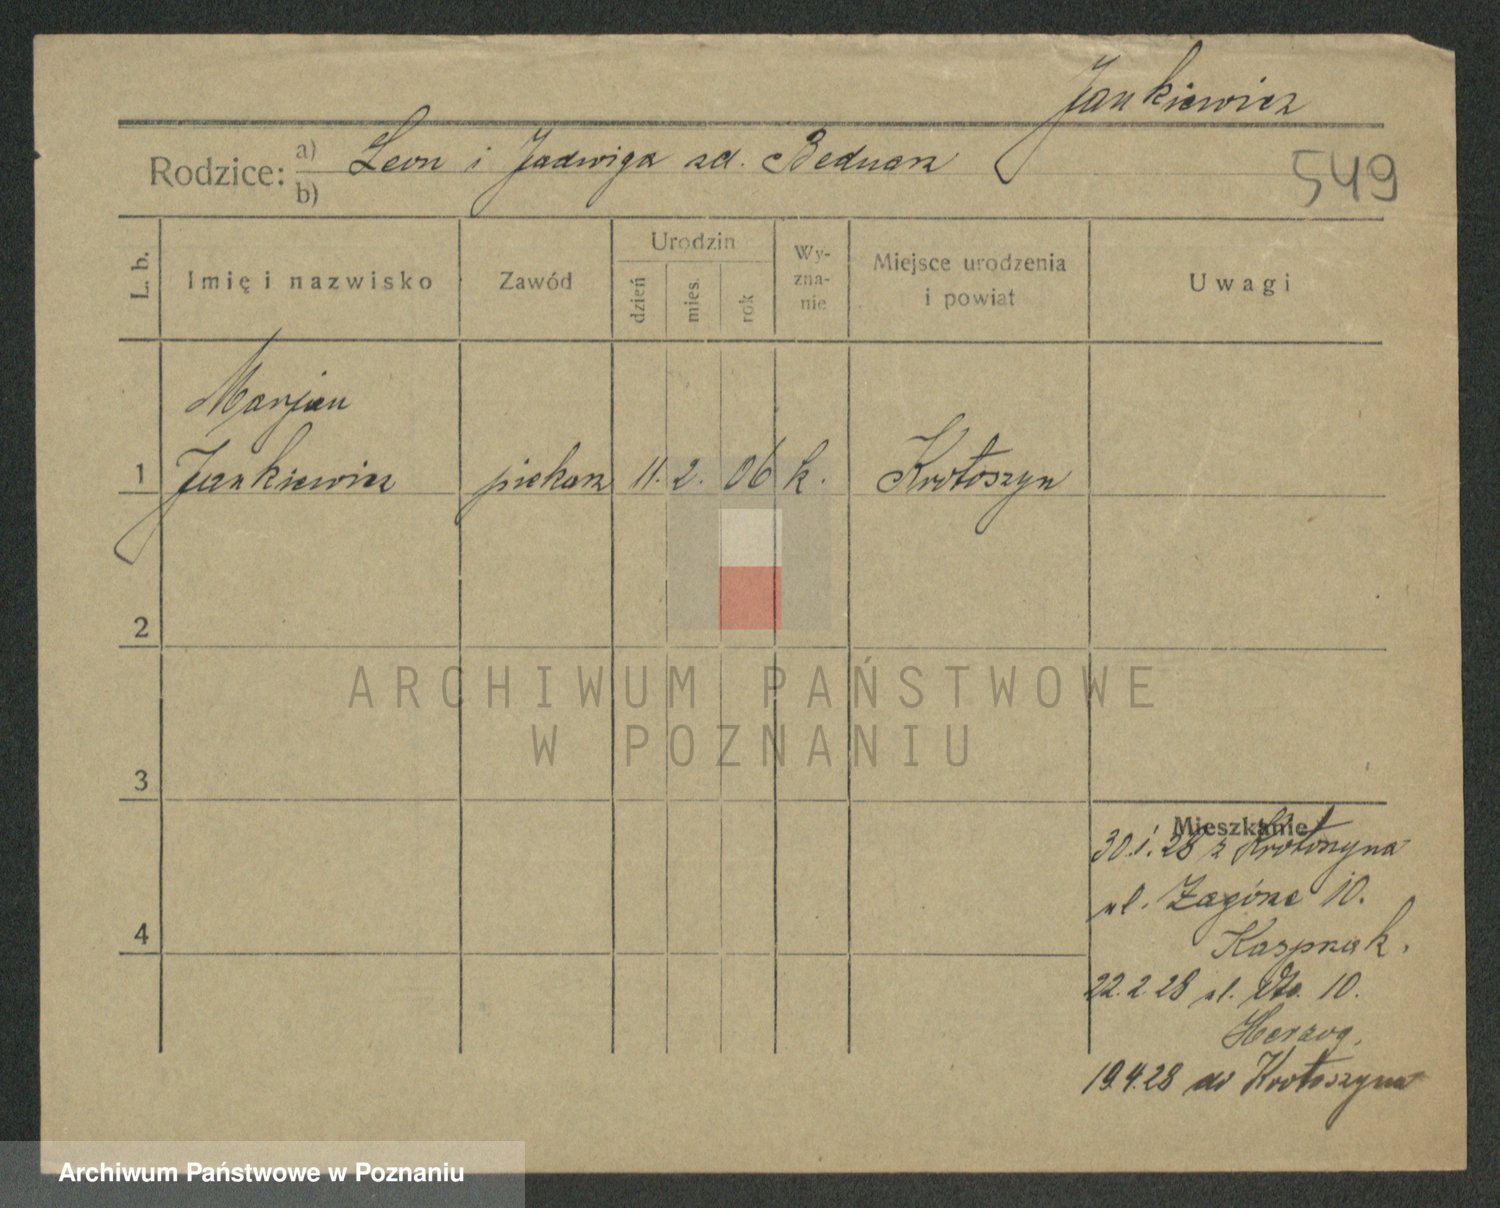 Jankiewicz
Rodzice: a) Leon i Jadwiga zd. Bednarz
b)
549
L. b.
Imię i nazwisko
Zawód
Urodzin
dzień
mies.
rok
Wy-
zna-
nie
Miejsce urodzenia
i powiat
Uwagi
Marjan
1 Jankiewicz piekarz 11. 2. 06 k. Krotoszyn
2
ARCHIWUM PAŃSTWOWE
W POZNANIU
3
Mieszkanie
30.1.28 z Krotoszyna
ul. Zagórze 10.
4
Kasprzak.
22.2.28 ul. dto. 10.
Herzog.
19.4.28 do Krotoszyna
Archiwum Państwowe w Poznaniu